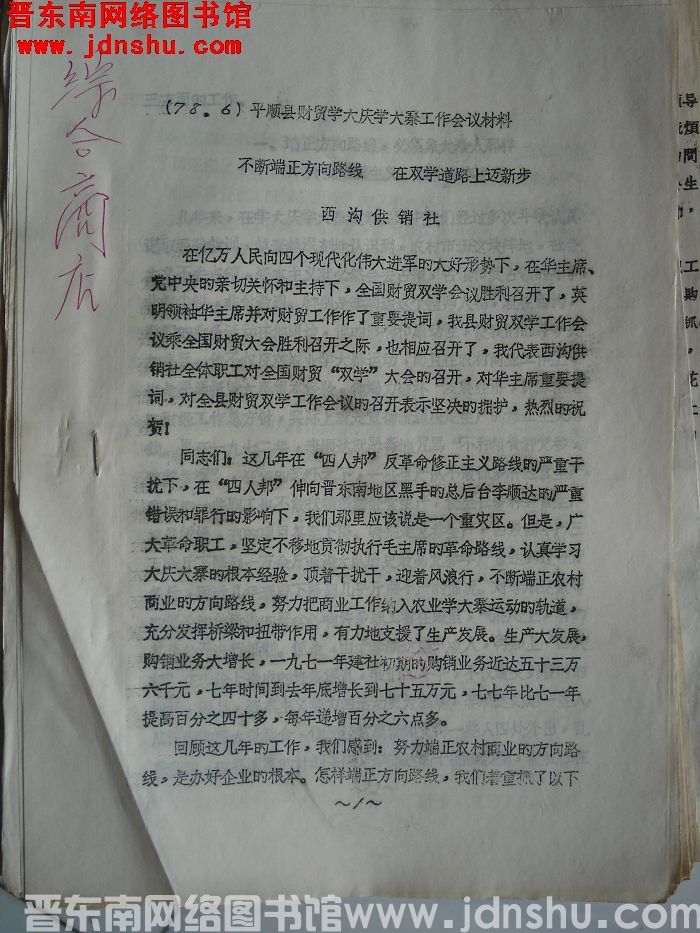 晋东南网络图书馆
www.jdnshu.com
综合商店
(78.6)平顺县财贸学大庆学大寨工作会议材料
不断端正方向路线 在双学道路上迈新步
西沟供销社
在亿万人民向四个现代化伟大进军的大好形势下，在华主席、
党中央的亲切关怀和主持下，全国财贸双学会议胜利召开了，英
明领袖华主席并对财贸工作作了重要提词，我县财贸双学工作会
议乘全国财贸大会胜利召开之际，也相应召开了，我代表西沟供
销社全体职工对全国财贸“双学”大会的召开，对华主席重要提
词，对全县财贸双学工作会议的召开表示坚决的拥护，热烈的祝
贺！
同志们：这几年在“四人邦”反革命修正主义路线的严重干
扰下，在“四人邦”伸向晋东南地区黑手的总后台李顺达的严重
错误和罪行的影响下，我们那里应该说是一个重灾区。但是，广
大革命职工，坚定不移地贯彻执行毛主席的革命路线，认真学习
大庆大寨的根本经验，顶着干扰干，迎着风浪行，不断端正农村
商业的方向路线，努力把商业工作纳入农业学大寨运动的轨道，
充分发挥桥梁和扭带作用，有力地支援了生产发展。生产大发展，
购销业务大增长，一九七一年建社初期的购销业务近达五十三万
六千元，七年时间到去年底增长到七十五万元，七七年比七一年
提高百分之四十多，每年递增百分之六点多。
回顾这几年的工作，我们感到：努力端正农村商业的方向路
线，是办好企业的根本。怎样端正方向路线，我们着重抓了以下
～1～
晋东南网络图书馆 www.jdnshu.com